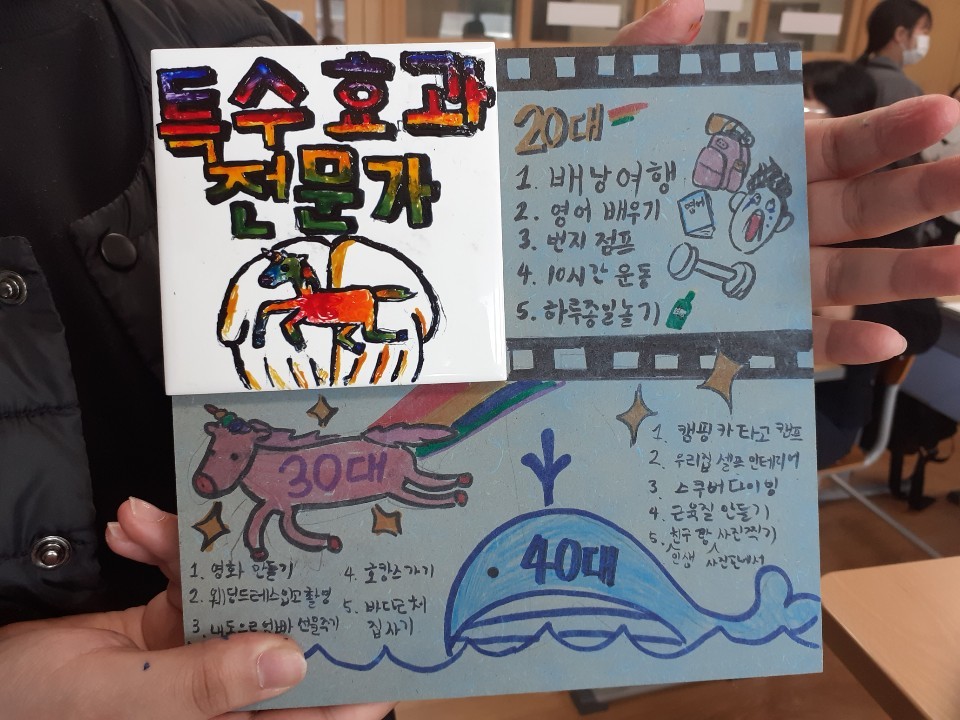 특수효과
전문가
20대
1. 배낭여행
2. 영어 배우기
3. 번지 점프
4. 10시간 운동
5. 하루종일놀기
영어
30대
1. 영화 만들기
2. 웨딩드레스입고촬영
3. 내돈으로 엄빠 선물주기
4. 호캉스가기
5. 바디프로필
찍기
40대
1. 캠핑카 타고 캠프
2. 우리집 셀프 인테리어
3. 스쿠버다이빙
4. 근육질 만들기
5. 친구랑 사진찍기
인생 사진관에서